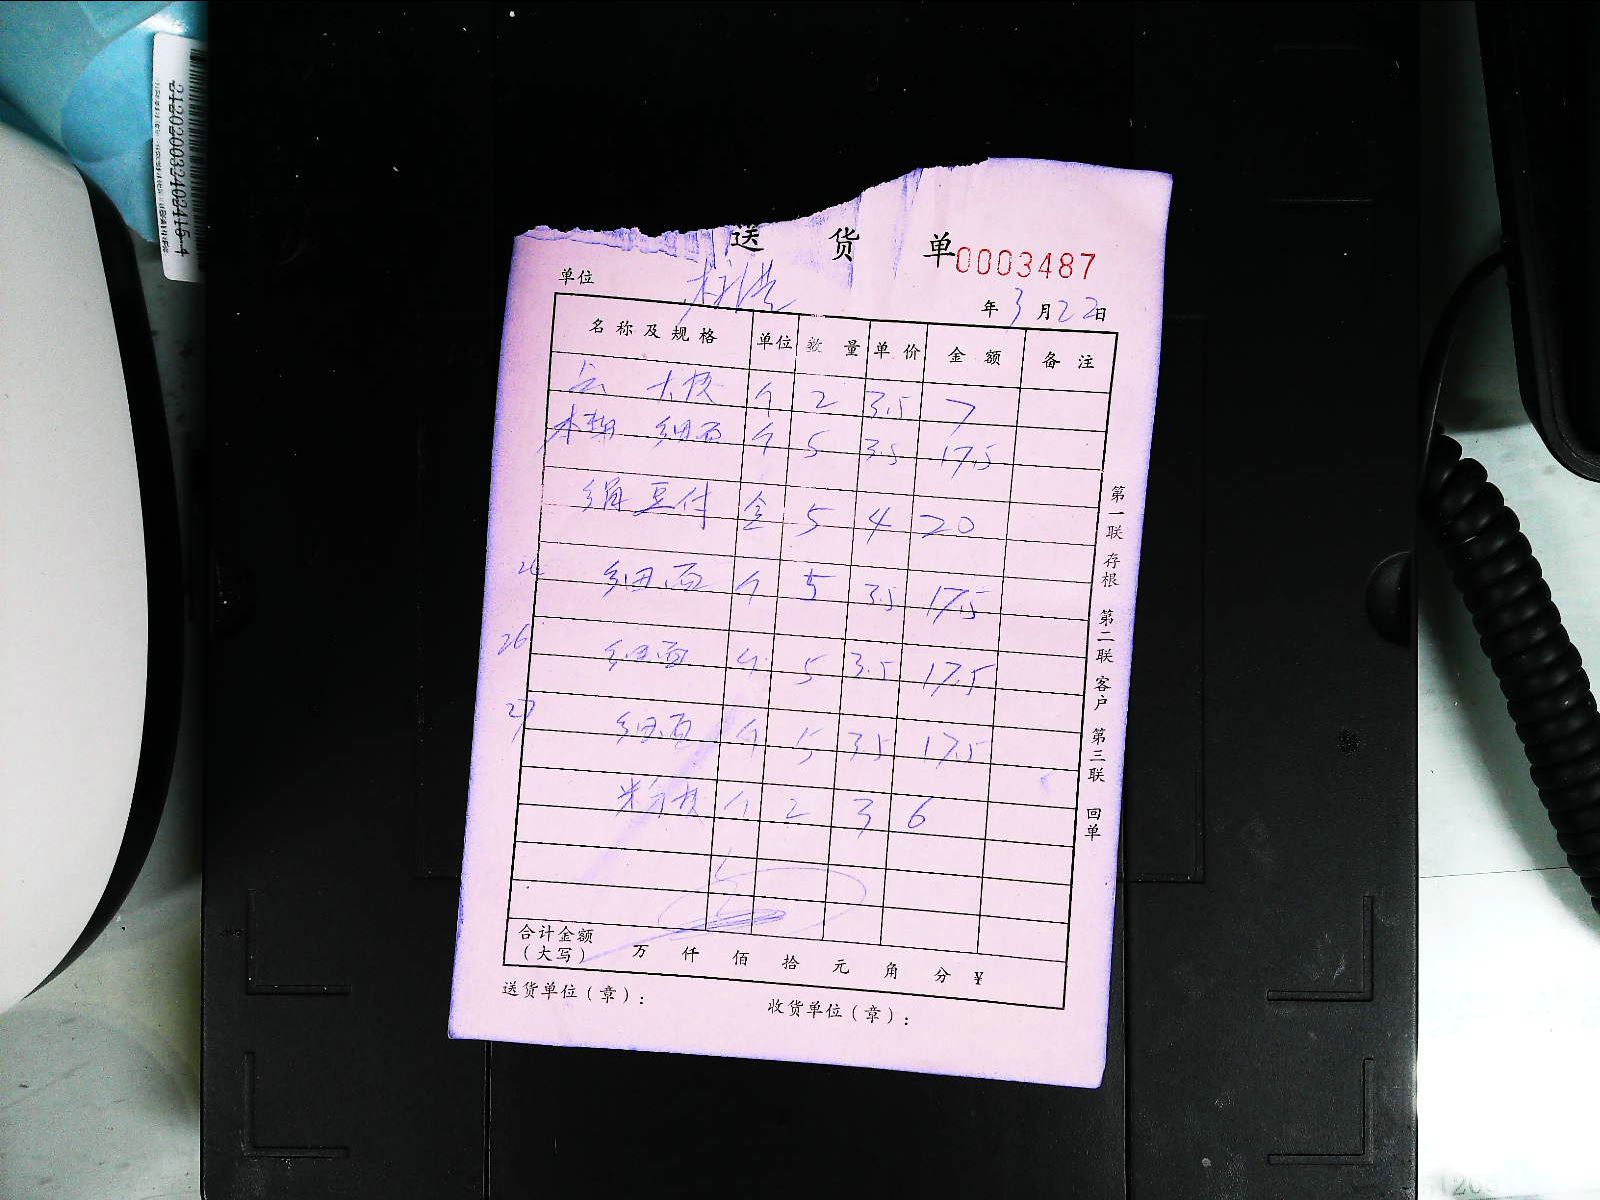 送 货 单 0003487
单位
年 3 月 22 日
名称及规格 单位 数量 单价 金额 备注
个 2 3.5 7
细面 个 5 3.5 17.5
绢豆付 盒 5 4 20
细面 个 5 3.5 17.5
26 细面 个 5 3.5 17.5
27 细面 个 5 3.5 17.5
个 2 3 6
合计金额
（大写） 万 仟 佰 拾 元 角 分 ¥
送货单位（章）： 收货单位（章）：
第一联 存根 第二联 客户 第三联 回单